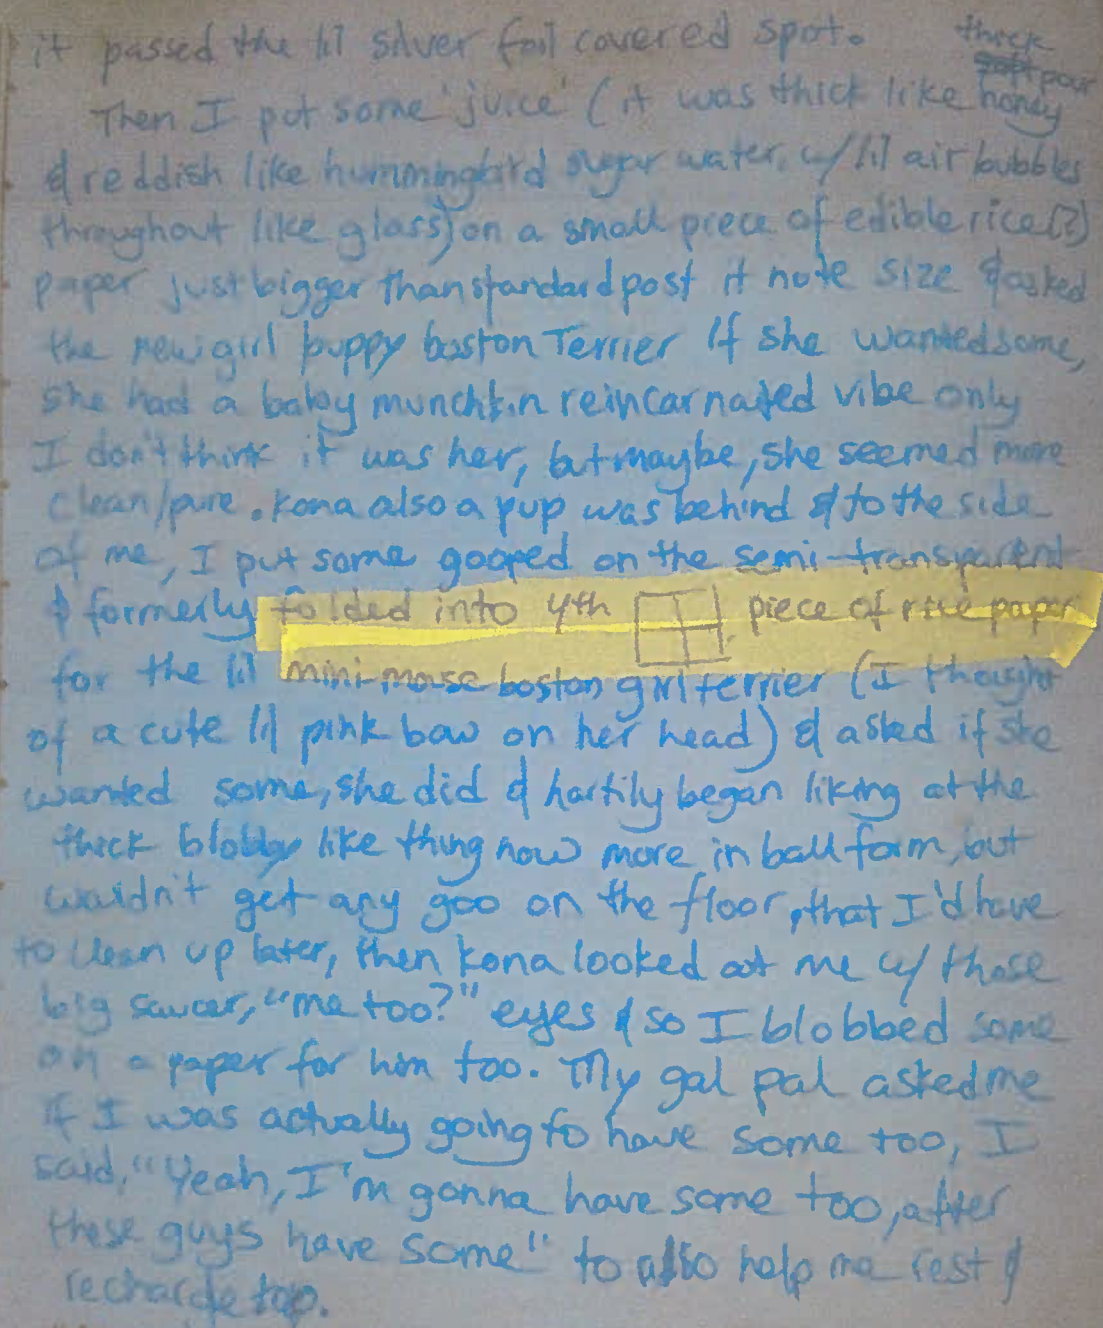 it passed the lil silver foil covered spot.
thick
pour
Then I put some 'juice' (it was thick like honey
& reddish like hummingbird sugar water, w/ lil air bubbles
throughout like glass) on a small piece of edible rice(?)
paper just bigger than standard post it note size & asked
the new girl puppy boston Terrier if she wanted some,
she had a baby munchkin reincarnated vibe only
I don't think it was her, but maybe, she seemed more
clean/pure. Kona also a pup was behind & to the side
of me, I put some gooped on the semi-transparent
& formerly folded into 4th piece of rice paper
for the lil mini-mouse boston girl terrier (I thought
of a cute lil pink bow on her head) & asked if she
wanted some, she did & hartily began liking at the
thick blobby like thing now more in ball form, but
wouldn't get any goo on the floor, that I'd have
to clean up later, then Kona looked at me w/ those
big saucer, "me too?" eyes & so I blobbed some
on a paper for him too. My gal pal asked me
if I was actually going to have some too, I
said, "Yeah, I'm gonna have some too, after
these guys have some" to also help me rest &
recharge too.